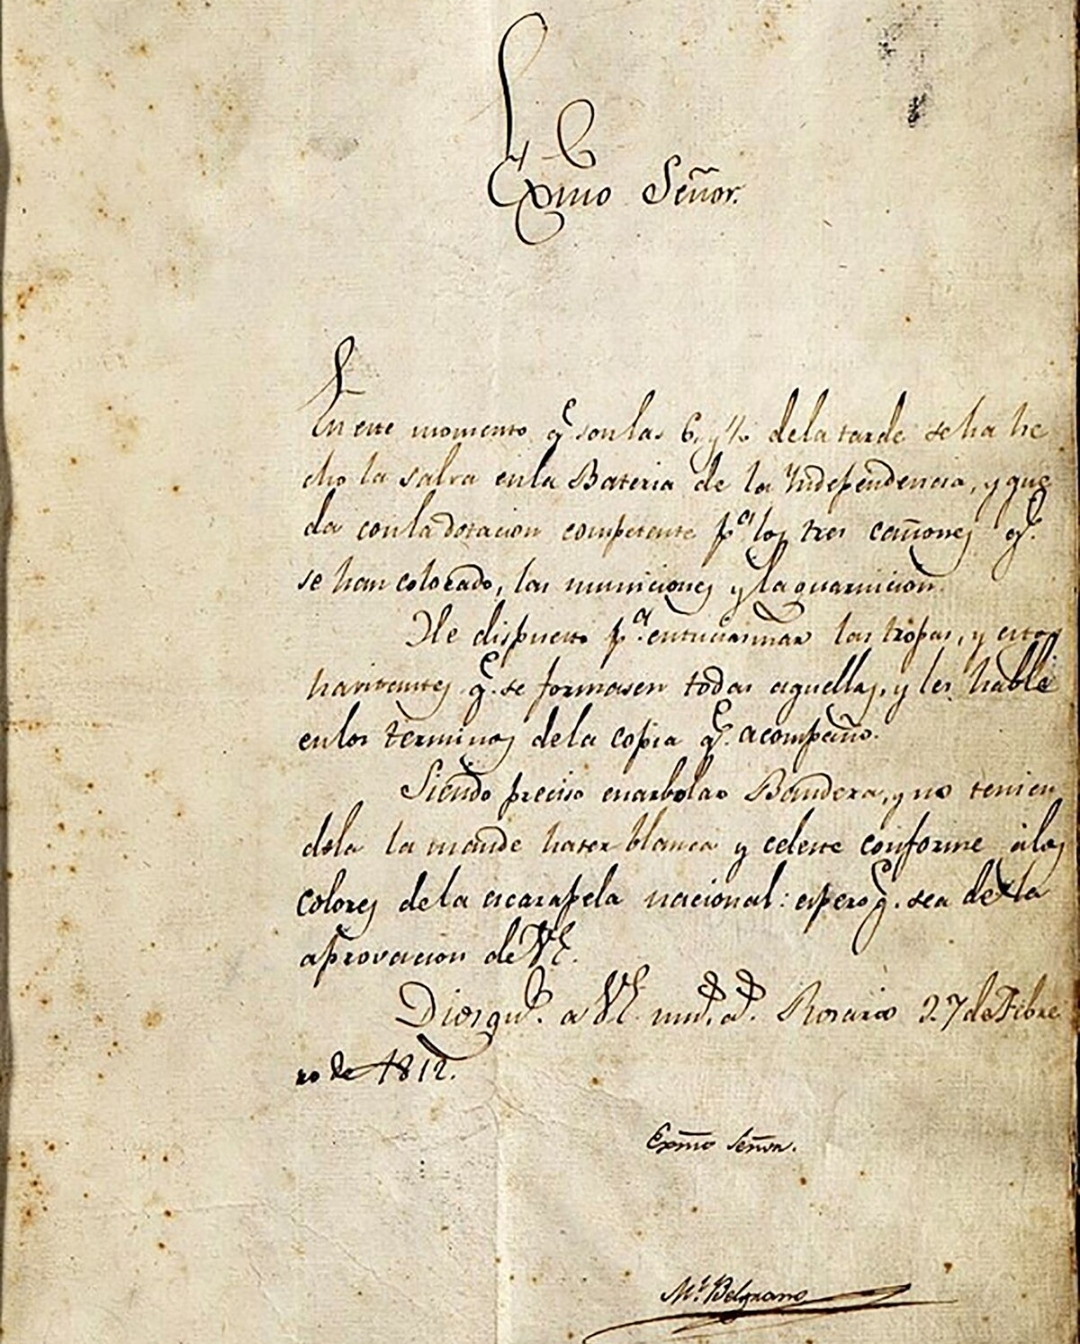 Exmo Señor.
En este momento q.e son las 6. y ½ dela tarde se ha he
cho la salva enla Bateria de la Independencia, y que
da con la dotacion competente p.a los tres cañones q.e
se han colocado, las municiones y la guarnicion.
He dispuesto p.a entuciasmar las tropas, y estos
havitantes q.e se formasen todas aquellas, y les hablé
enlos terminos dela copia q.e acompaño.
Siendo preciso enarbolar Bandera, y no tenien
dola la mande hacer blanca y celeste conforme álos
colores dela escarapela nacional: espero q.e sea de la
aprovacion de VE.
Dios gu.e a VE. m.s a.s Rosario 27 de Febre
ro de 1812.
Exmo Señor.
M.l Belgrano